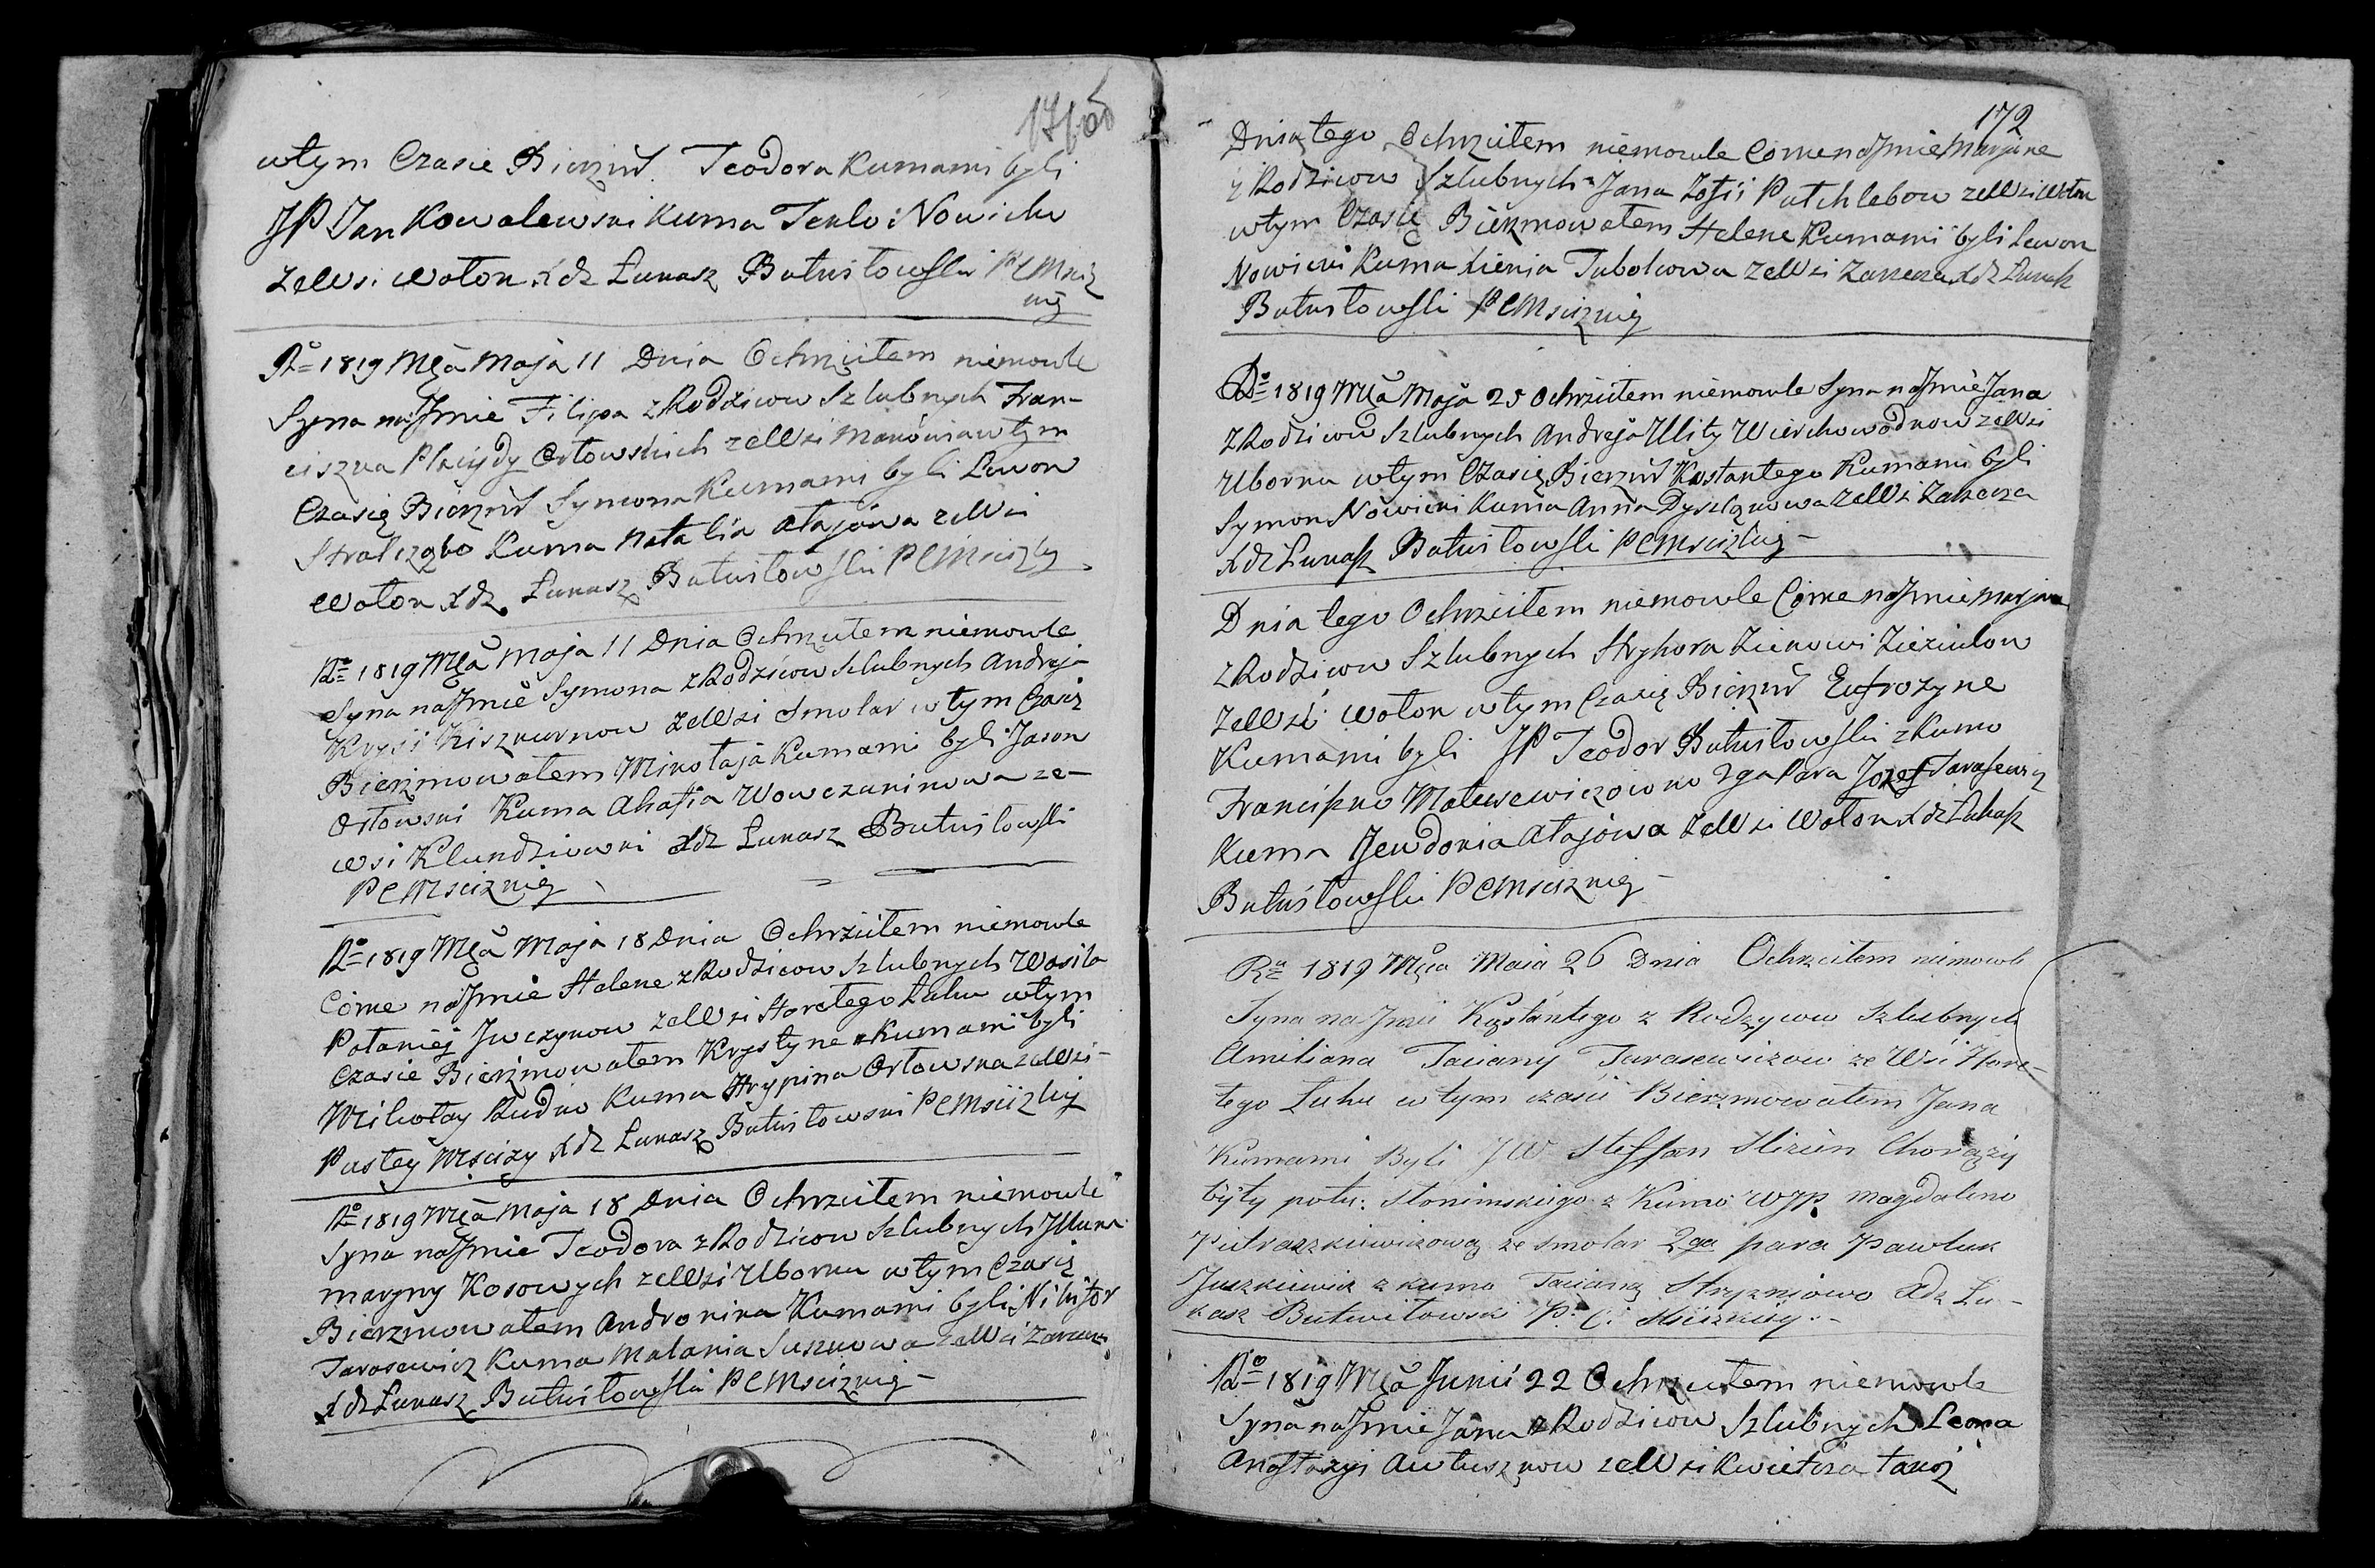 171
wtym Czasie Bierzm Teodora Kumami byli
JP Jan Kowalewski Kuma Tekla Nowicka
ze Wsi Woton Xdz Łukasz Butwiłowski P C Msciz
nig
Ro 1819 Mca Maja 11 Dnia Ochrzciłem niemowle
Syna na Jmie Filipa z Rodzicow Szlubnych Fran-
ciszka Placydy Orłowskich ze Wsi wtym
Czasie Bierzm Symona Kumami byli Lawon
Kuma Natalia Atajowa ze Wsi
Woton Xdz Łukasz Butwiłowski P C Mscizkig
Ro 1819 Mca Maja 11 Dnia Ochrzciłem niemowle
Syna na Jmie Symona z Rodzicow Szlubnych Andreja
Krysti Kiszkurnow ze Wsi Smolar wtym Czasie
Bierzmowałem Mikołaja Kumami byli Jason
Orłowski Kuma Ahafia Wowczaninowa ze-
wsi Klundziewki Xdz Łukasz Butwiłowski
P C Mscizkig
Ro 1819 Mca Maja 18 Dnia Ochrzciłem niemowle
Corke na Jmie Helene z Rodzicow Szlubnych Wasila
Połaniej Jwczykow ze Wsi Horełego Łuhu wtym
Czasie Bierzmowałem Krystyne Kumami byli
Mikołay Rudko Kuma Hrypina Orłowska ze Wsi-
Pustey Mscizy Xdz Łukasz Butwiłowski P C Mscizkig
Ro 1819 Mca Maja 18 Dnia Ochrzciłem niemowle
Syna na Jmie Teodora z Rodzicow Szlubnych
Maryny Kosowych ze Wsi Uborku wtym Czasie
Bierzmowałem Andronika Kumami byli Nikifor
Tarasewicz Kuma Malania Suszkowa ze Wsi Zarecza
Xdz Łukasz Butwiłowski P C Mscizkig-
172
Dnia tego Ochrzciłem niemowle Corke na Jmie Marjane
z Rodzicow Szlubnych Jana Zofii Putchlebow ze Wsi Woton
wtym Czasie Bierzmowałem Helene Kumami byli Lawon
Nowicki Kuma Xienia Tubolcowa ze Wsi Zarecza Xdz Łukasz
Butwiłowski P C Mscizkig
Ro 1819 Mca Maja 25 Ochrzciłem niemowle Syna na Jmie Jana
z Rodzicow Szlubnych Andreja Ulity Wierchowodkow ze Wsi
Uborku wtym Czasie Bierzm Kostantego Kumami byli
Symon Nowicki Kuma Anna ze Wsi Zarecza
Xdz Łukasz Butwiłowski P C Mscizkig-
Dnia tego Ochrzciłem niemowle Corke na Jmie Marjane
z Rodzicow Szlubnych Hryhora Zienowi Zieziulow
ze Wsi Woton wtym Czasie Bierzm Eufrozyne
Kumami byli JP Teodor Butwiłowski z Kumo
Franciszko 2ga Para Jozef Tarasewicz
Kuma Jewdokia Atajowa ze Wsi Woton Xdz Łukasz
Butwiłowski P C Mscizkig-
Ra 1819 Mca Maia 26 Dnia Ochrzciłem niemowle
Syna na Jmie Kąstantego z Rodzycow Szlubnych
Amiliana Taciany Tarasewiczow ze Wsi Hore-
łego Łuhu w tym czasie Bierzmowałem Jana
Kumami Byli JW Steffan Mirien Chorąży
były potu: Słonimskiego z Kumo WJP. Magdaleno
Pietraszkiewiczową ze Smolar 2ga para Pawluk
Juszkiewicz z kumo Tacianą Xdz Łu-
kasz Butwiłowski P. C: Mścizkiy.-
Ro 1819 Mca Junii 22 Ochrzciłem niemowle
Syna na Jmie Jana z Rodzicow Szlubnych Leona
Anastazyi Awłuszkow ze Wsi Kwietcza takoż